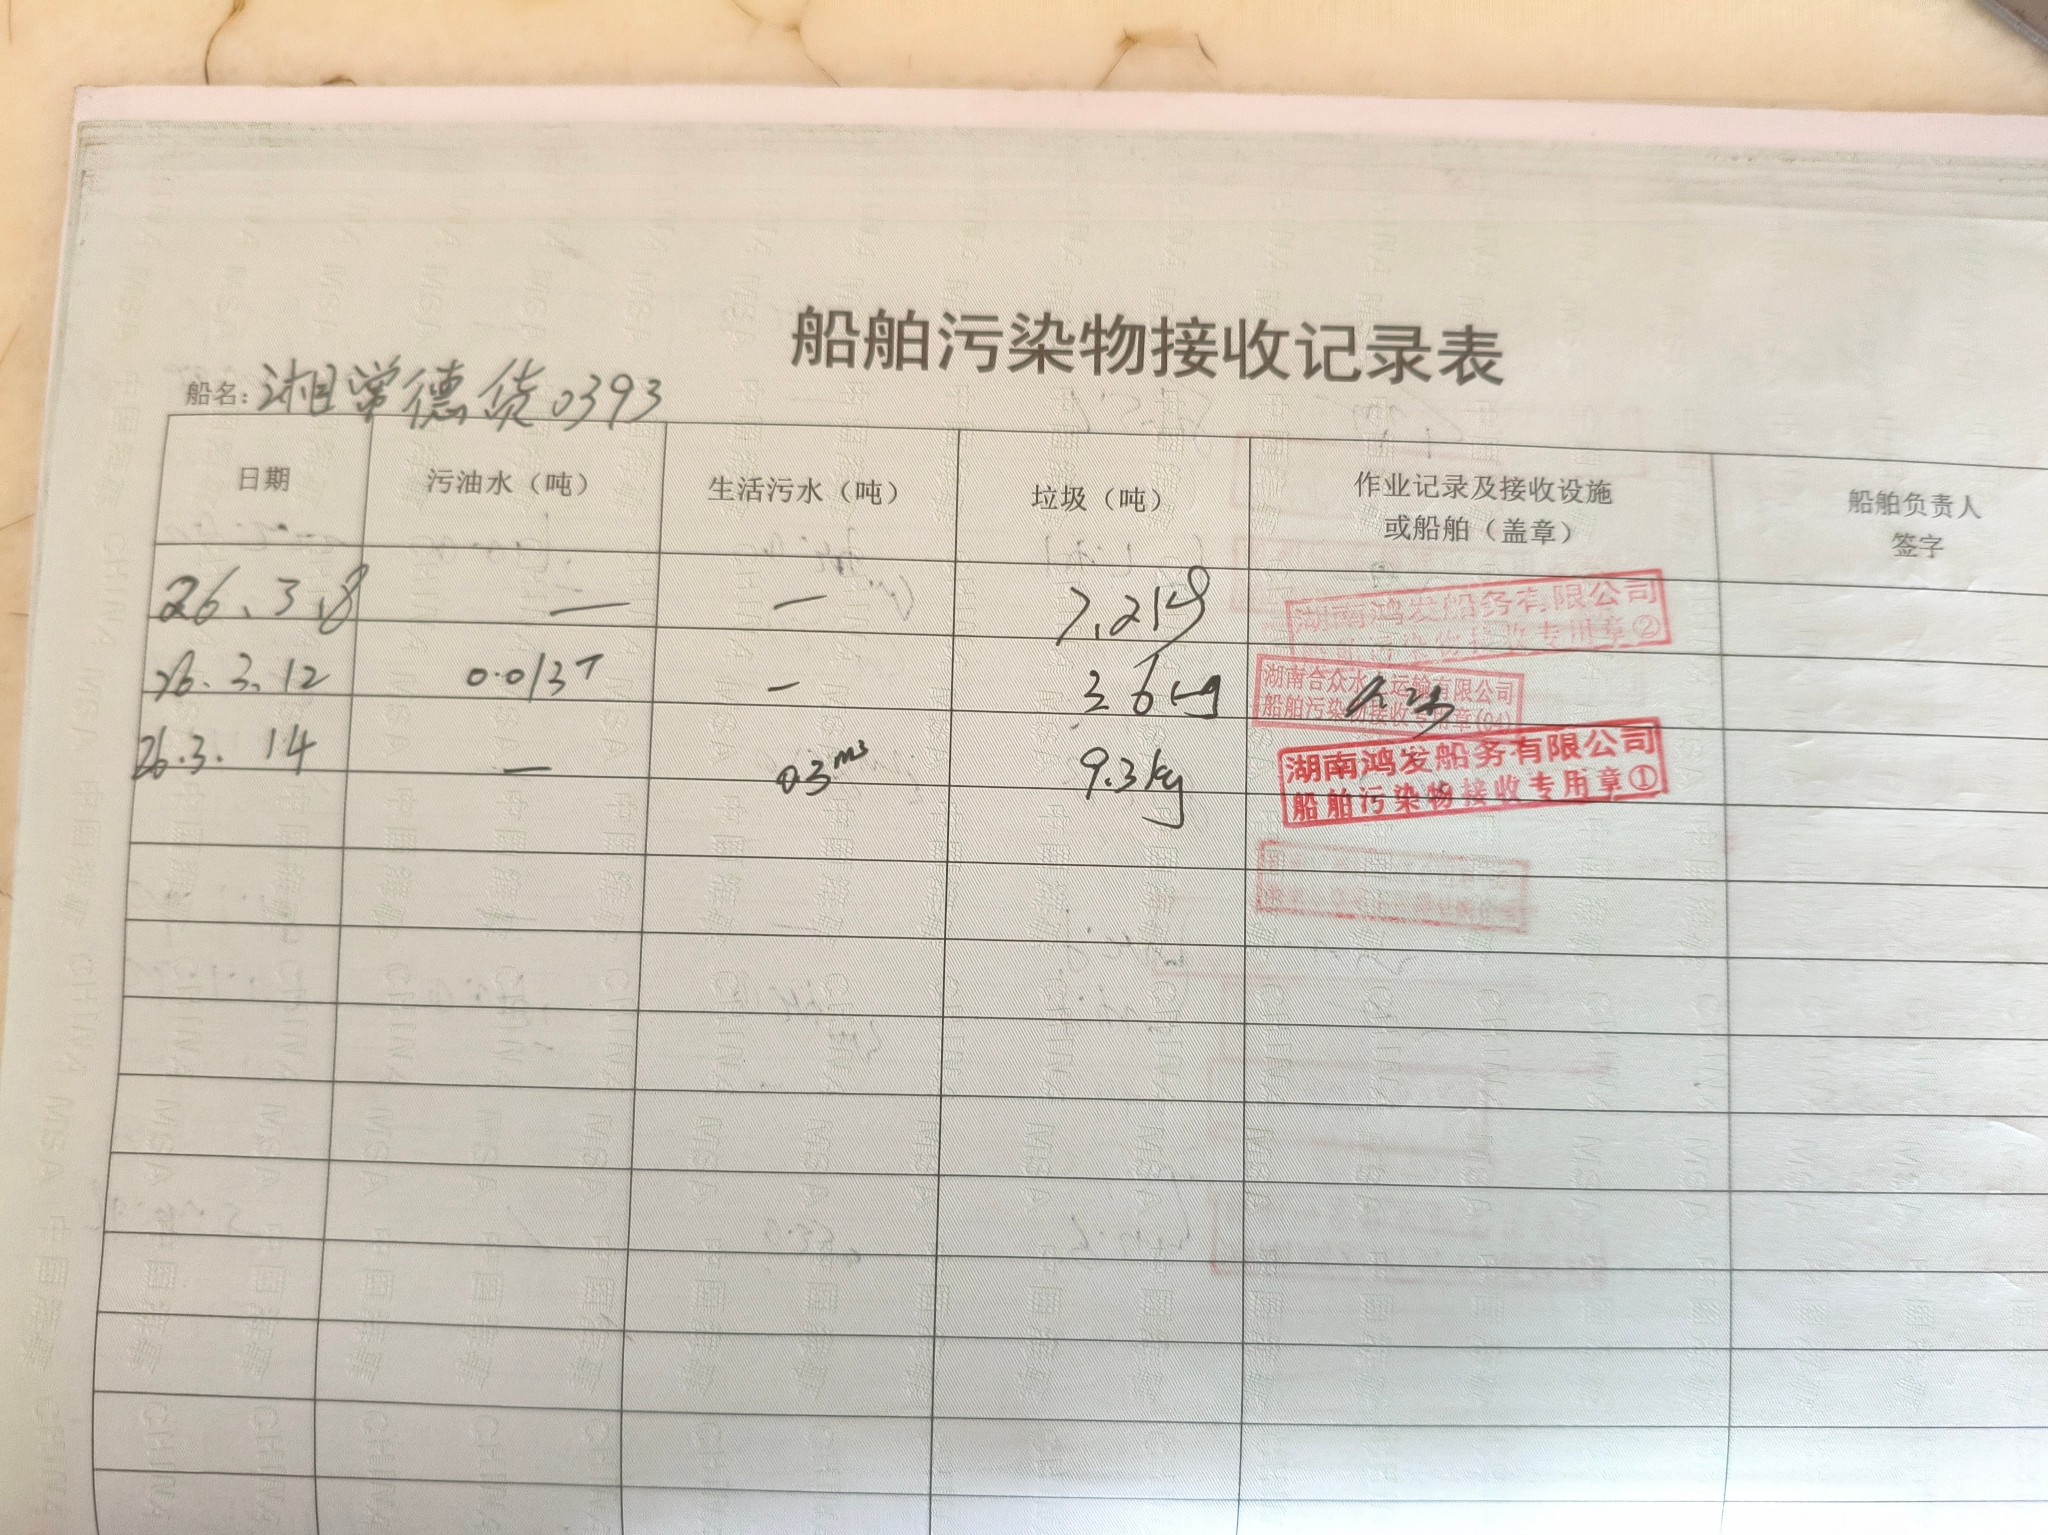 船舶污染物接收记录表
船名：湘常德货0393
日期 污油水（吨） 生活污水（吨） 垃圾（吨） 作业记录及接收设施 船舶负责人
或船舶（盖章） 签字
26.3.8 — — 7.2kg 湖南鸿发船务有限公司
船舶污染物接收专用章②
26.3.12 0.013T — 3.6kg 湖南合众水上运输有限公司
船舶污染物接收专用章(04)
26.3.14 — 0.3m³ 9.3kg 湖南鸿发船务有限公司
船舶污染物接收专用章①